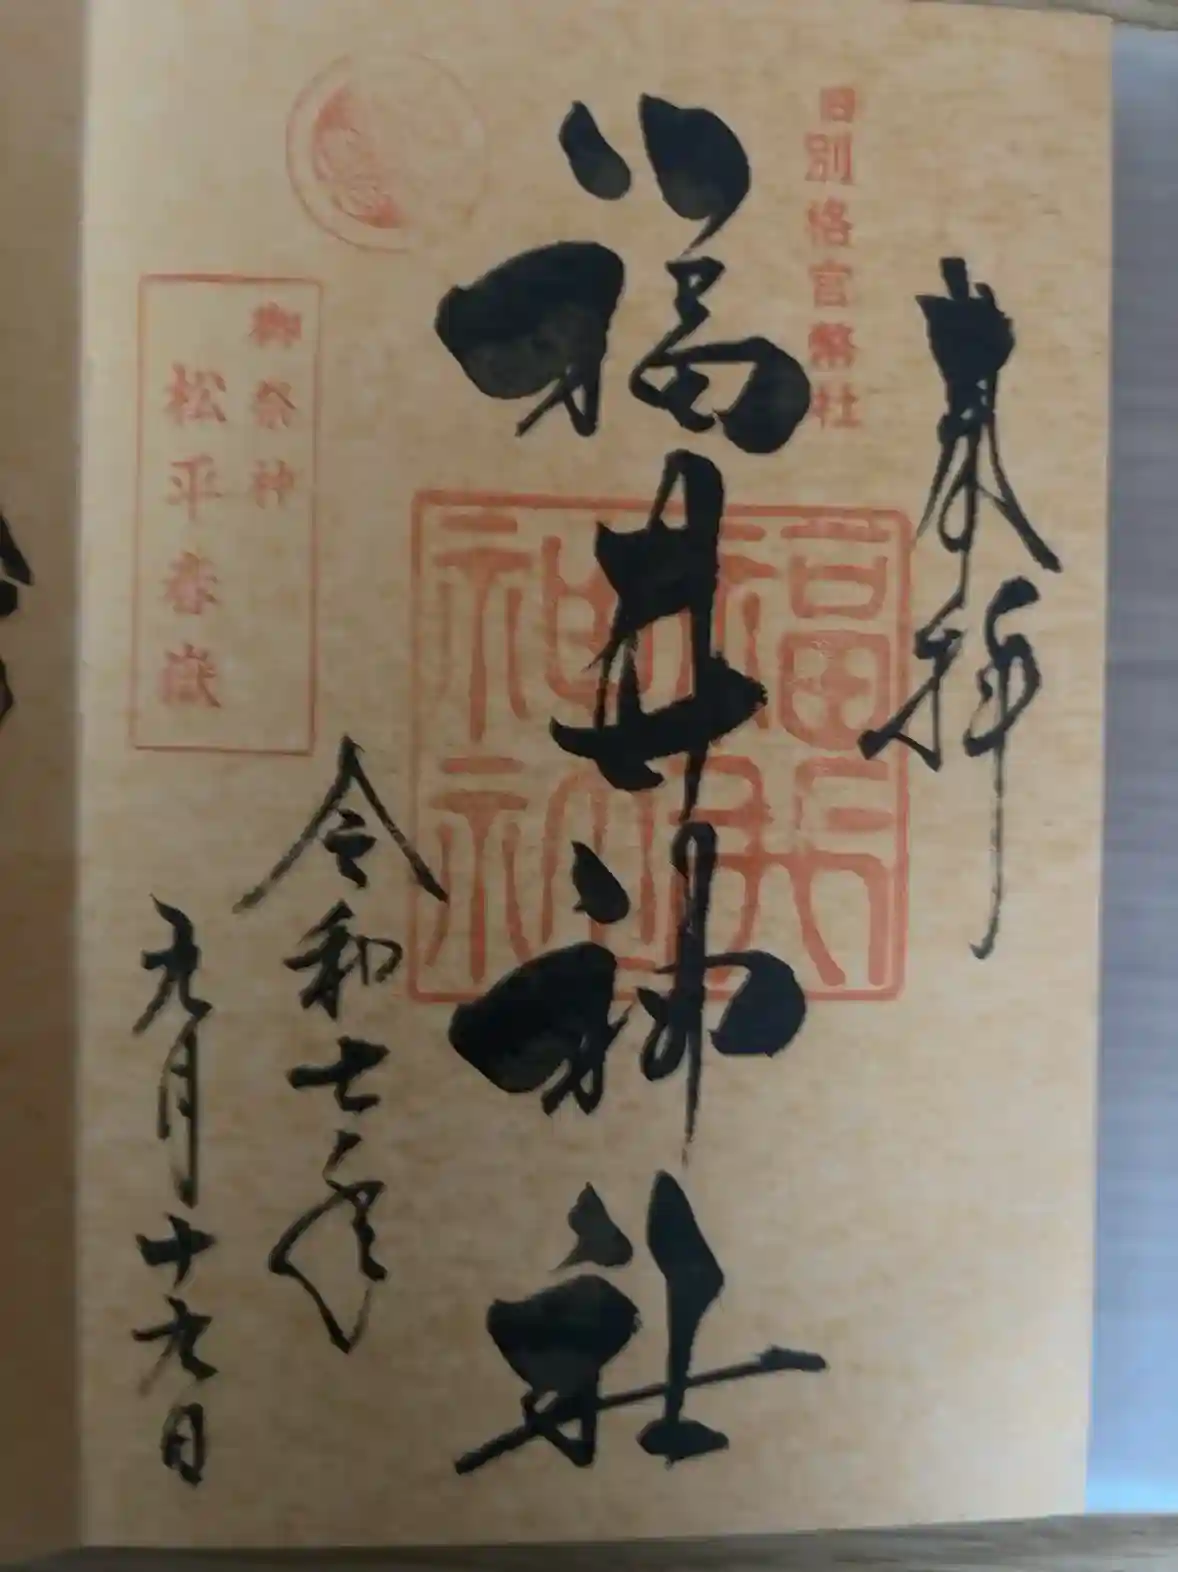 奉拝
旧別格官幣社
福井神社
福井
神社
御祭神
松平春嶽
令和七年
九月十九日